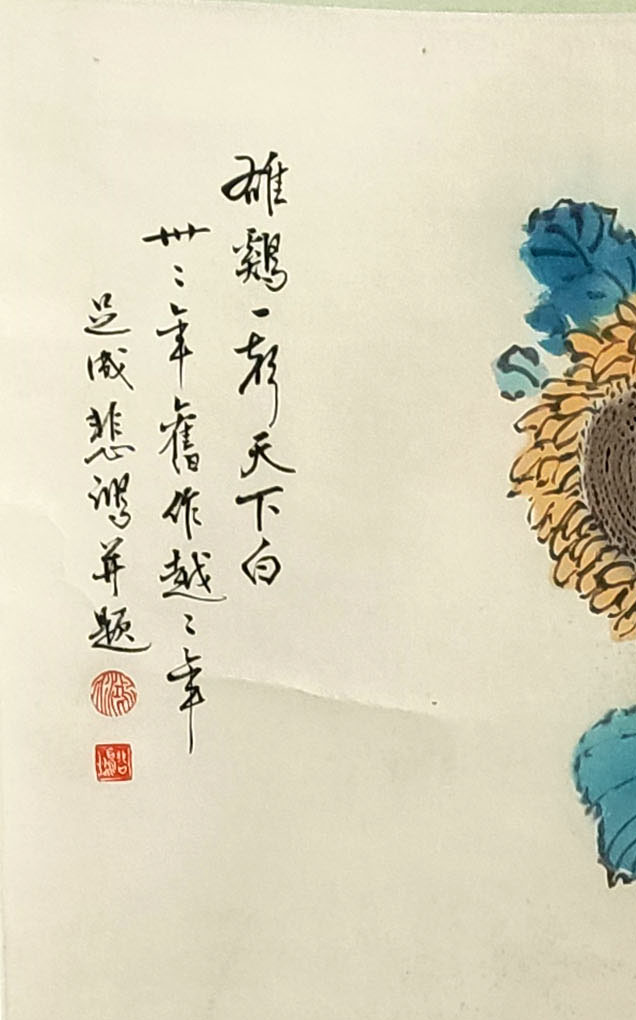 雄鷄一聲天下白
卅二年舊作越二年
足成悲鴻并題